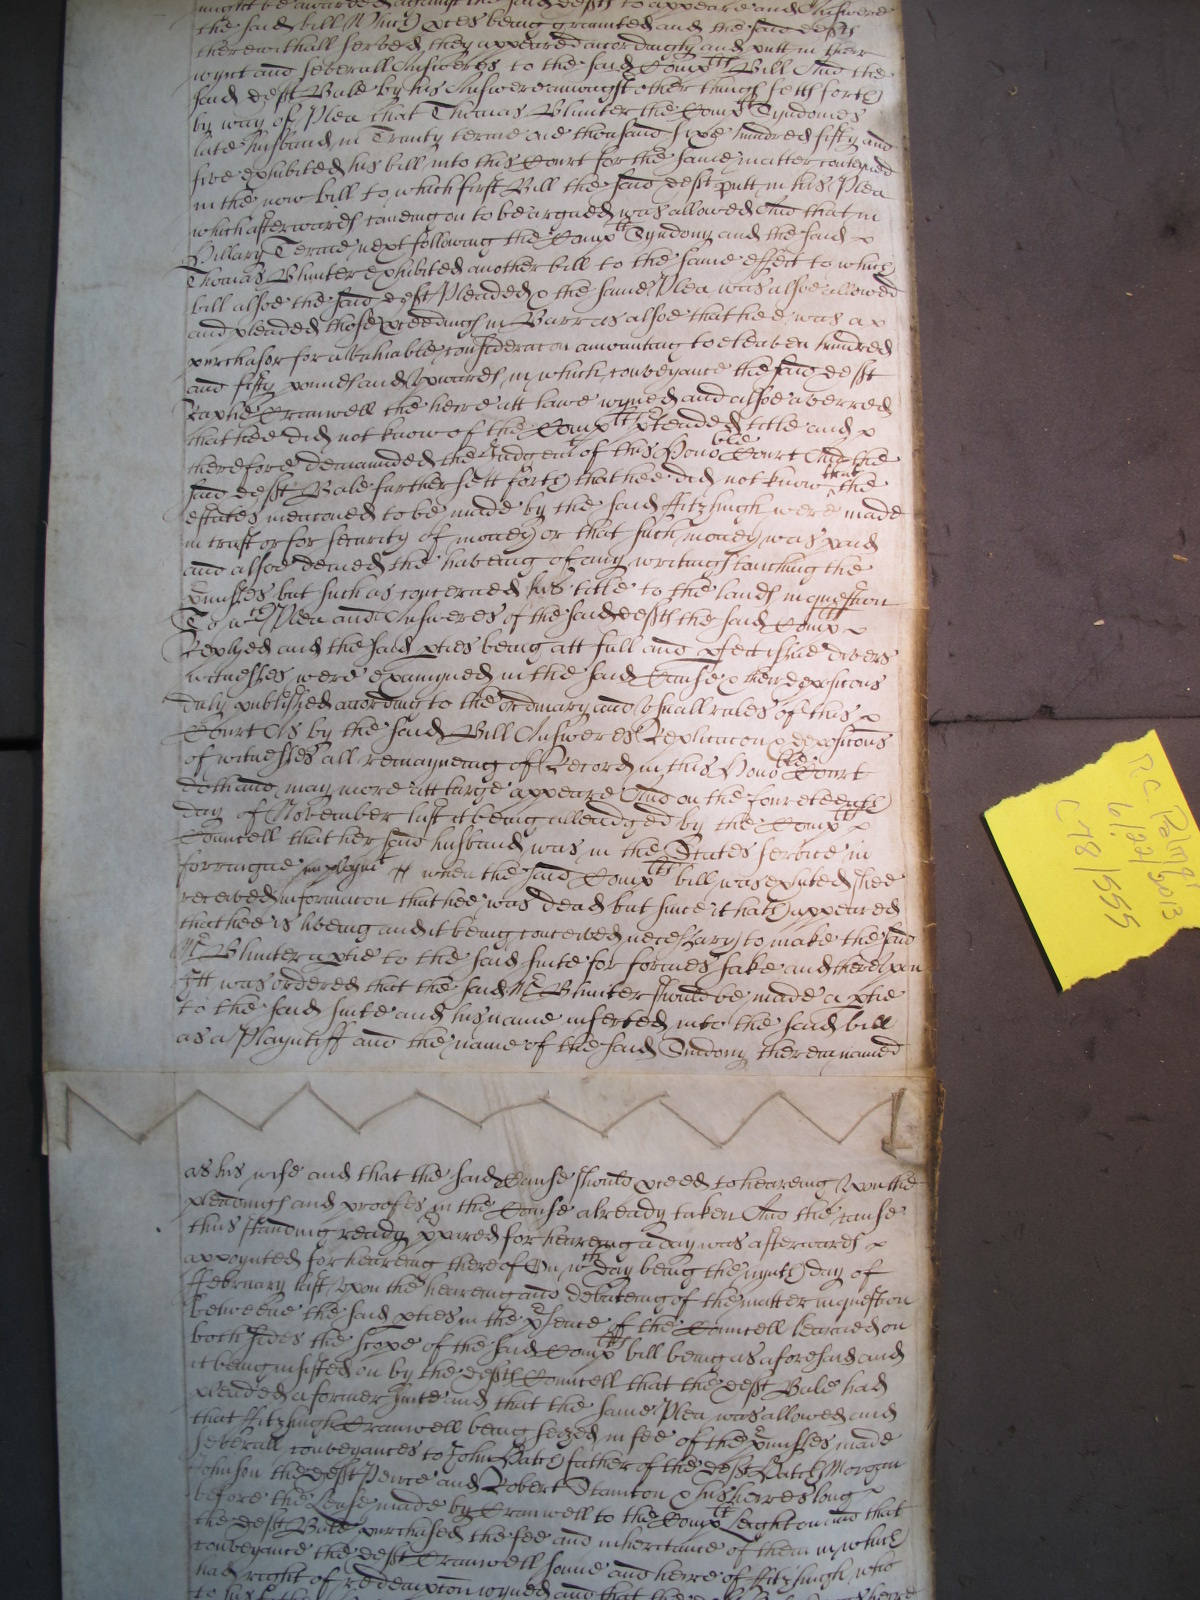 might be awarded against the said defts to appeare and Answere
the said bill Which p̱ces being graunted and the said defts
therewithall served they appeared accordingly and putt in their
ioynt and severall Answeres to the said Compᵗˢ Bill And the
said deft Bale by his Answere amongst other things setts forth
by way of Plea that Thomas Blunter the Compᵗ Syndonies
late husband in Trinity terme one thousand sixe hundred fifty and
five exhibited his bill into this Court for the same matter conteyned
in the now bill to which first Bill the said deft putt in his Plea
which afterwards comeing on to be argued was allowed And that in
Hillary Terme next following the Compᵗ Syndony and the said
Thomas Blunter exhibited another bill to the same effect to which
bill alsoe the said deft Pleaded & the same Plea was alsoe allowed
and pleaded those p̱ceedings in Barr as alsoe that hee was a
purchasor for a valuable consideracon amounting to eleaven hundred
and fifty pounds and upwards in which conveyance the said deft
Raphe Cranwell the heire att lawe ioyned and alsoe averred
that hee did not know of the Compᵗˢ p̱tended title and
therefore demaunded the Judgemᵗ of this Honoᵇˡᵉ Court And the
said deft Bale further sett forth that hee did not know that the
estates menconed to be made by the said ffitzhugh were made
in trust or for security of money or that such money was paid
and alsoe denied the haveing of any writings touching the
p̱misses but such as concerned his title to the lands in question
To wᶜʰ Plea and Answeres of the said defts the said Compᵗˢ
Replyed and the said p̱ties being att full and p̱fect issue divers
witnesses were examyned in the said Cause & their deposicons
duly published according to the ordinary and usuall rules of this
Court As by the said Bill Answeres Replicacon & deposicons
of witnesses all remayneing of Record in this Honoᵇˡᵉ Court
doth and may more att large appeare And on the fowreteenth
day of November last it being alleadged by the Compᵗˢ
Councell that her said husband was in the States service in
forraigne imploymᵗ & when the said Compᵗˢ bill was exhited shee
received informacon that hee was dead but since it hath appeared
that hee is liveing and it being conceived necessary to make the said
Mʳ Blunter a p̱tie to the said suite for formes sake and thereupon
Itt was ordered that the said Mʳ Blunter should be made a p̱tie
to the said suite and his name inserted into the said bill
as a Playntiff and the name of the said Sindony therein named
as his wife and that the said Cause should p̱ceed to heareing upon the
pleadings and proofes in the Cause already taken And the cause
thus standing ready p̱pared for heareing a day was afterwards
appoynted for heareing thereof On wᶜʰ day being the nynth day of
ffebruary last upon the heareing and debateing of the matter in question
betweene the said p̱ties in the p̱sence of the Councell learned on
both sides the scope of the said Compᵗˢ bill being as aforesaid and
it being insisted on by the defts Councell that the deft Bale had
pleaded a former suite and that the same Plea was allowed and
that ffitzhugh Cranwell being seized in fee of the p̱misses made
severall conveyances to John Hatch father of the deft Hatch Morgan
Johnson the deft Peirce and Robert Stanton & his heires long
before the Lease made by Cranwell to the Compᵗ Leighton and that
the deft Bale purchased the fee and inheritance of them in which
conveyance the deft Cranwell sonne and heire of ffitzhugh who
had right of redempcon ioyned and that the
R.C. Palmer
6/27/2013
C78/555